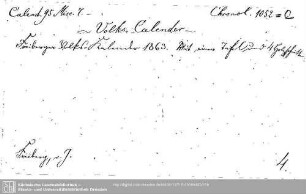 Calend. 95 Misc. 7. Chronol. 1052 = C
Volks-Calender
Freiberger Volks Kalender 1863. Mit einer Tafel u. 4
Freiberg, J.
4.
Sächsische Landesbibliothek -
Staats- und Universitätsbibliothek Dresden